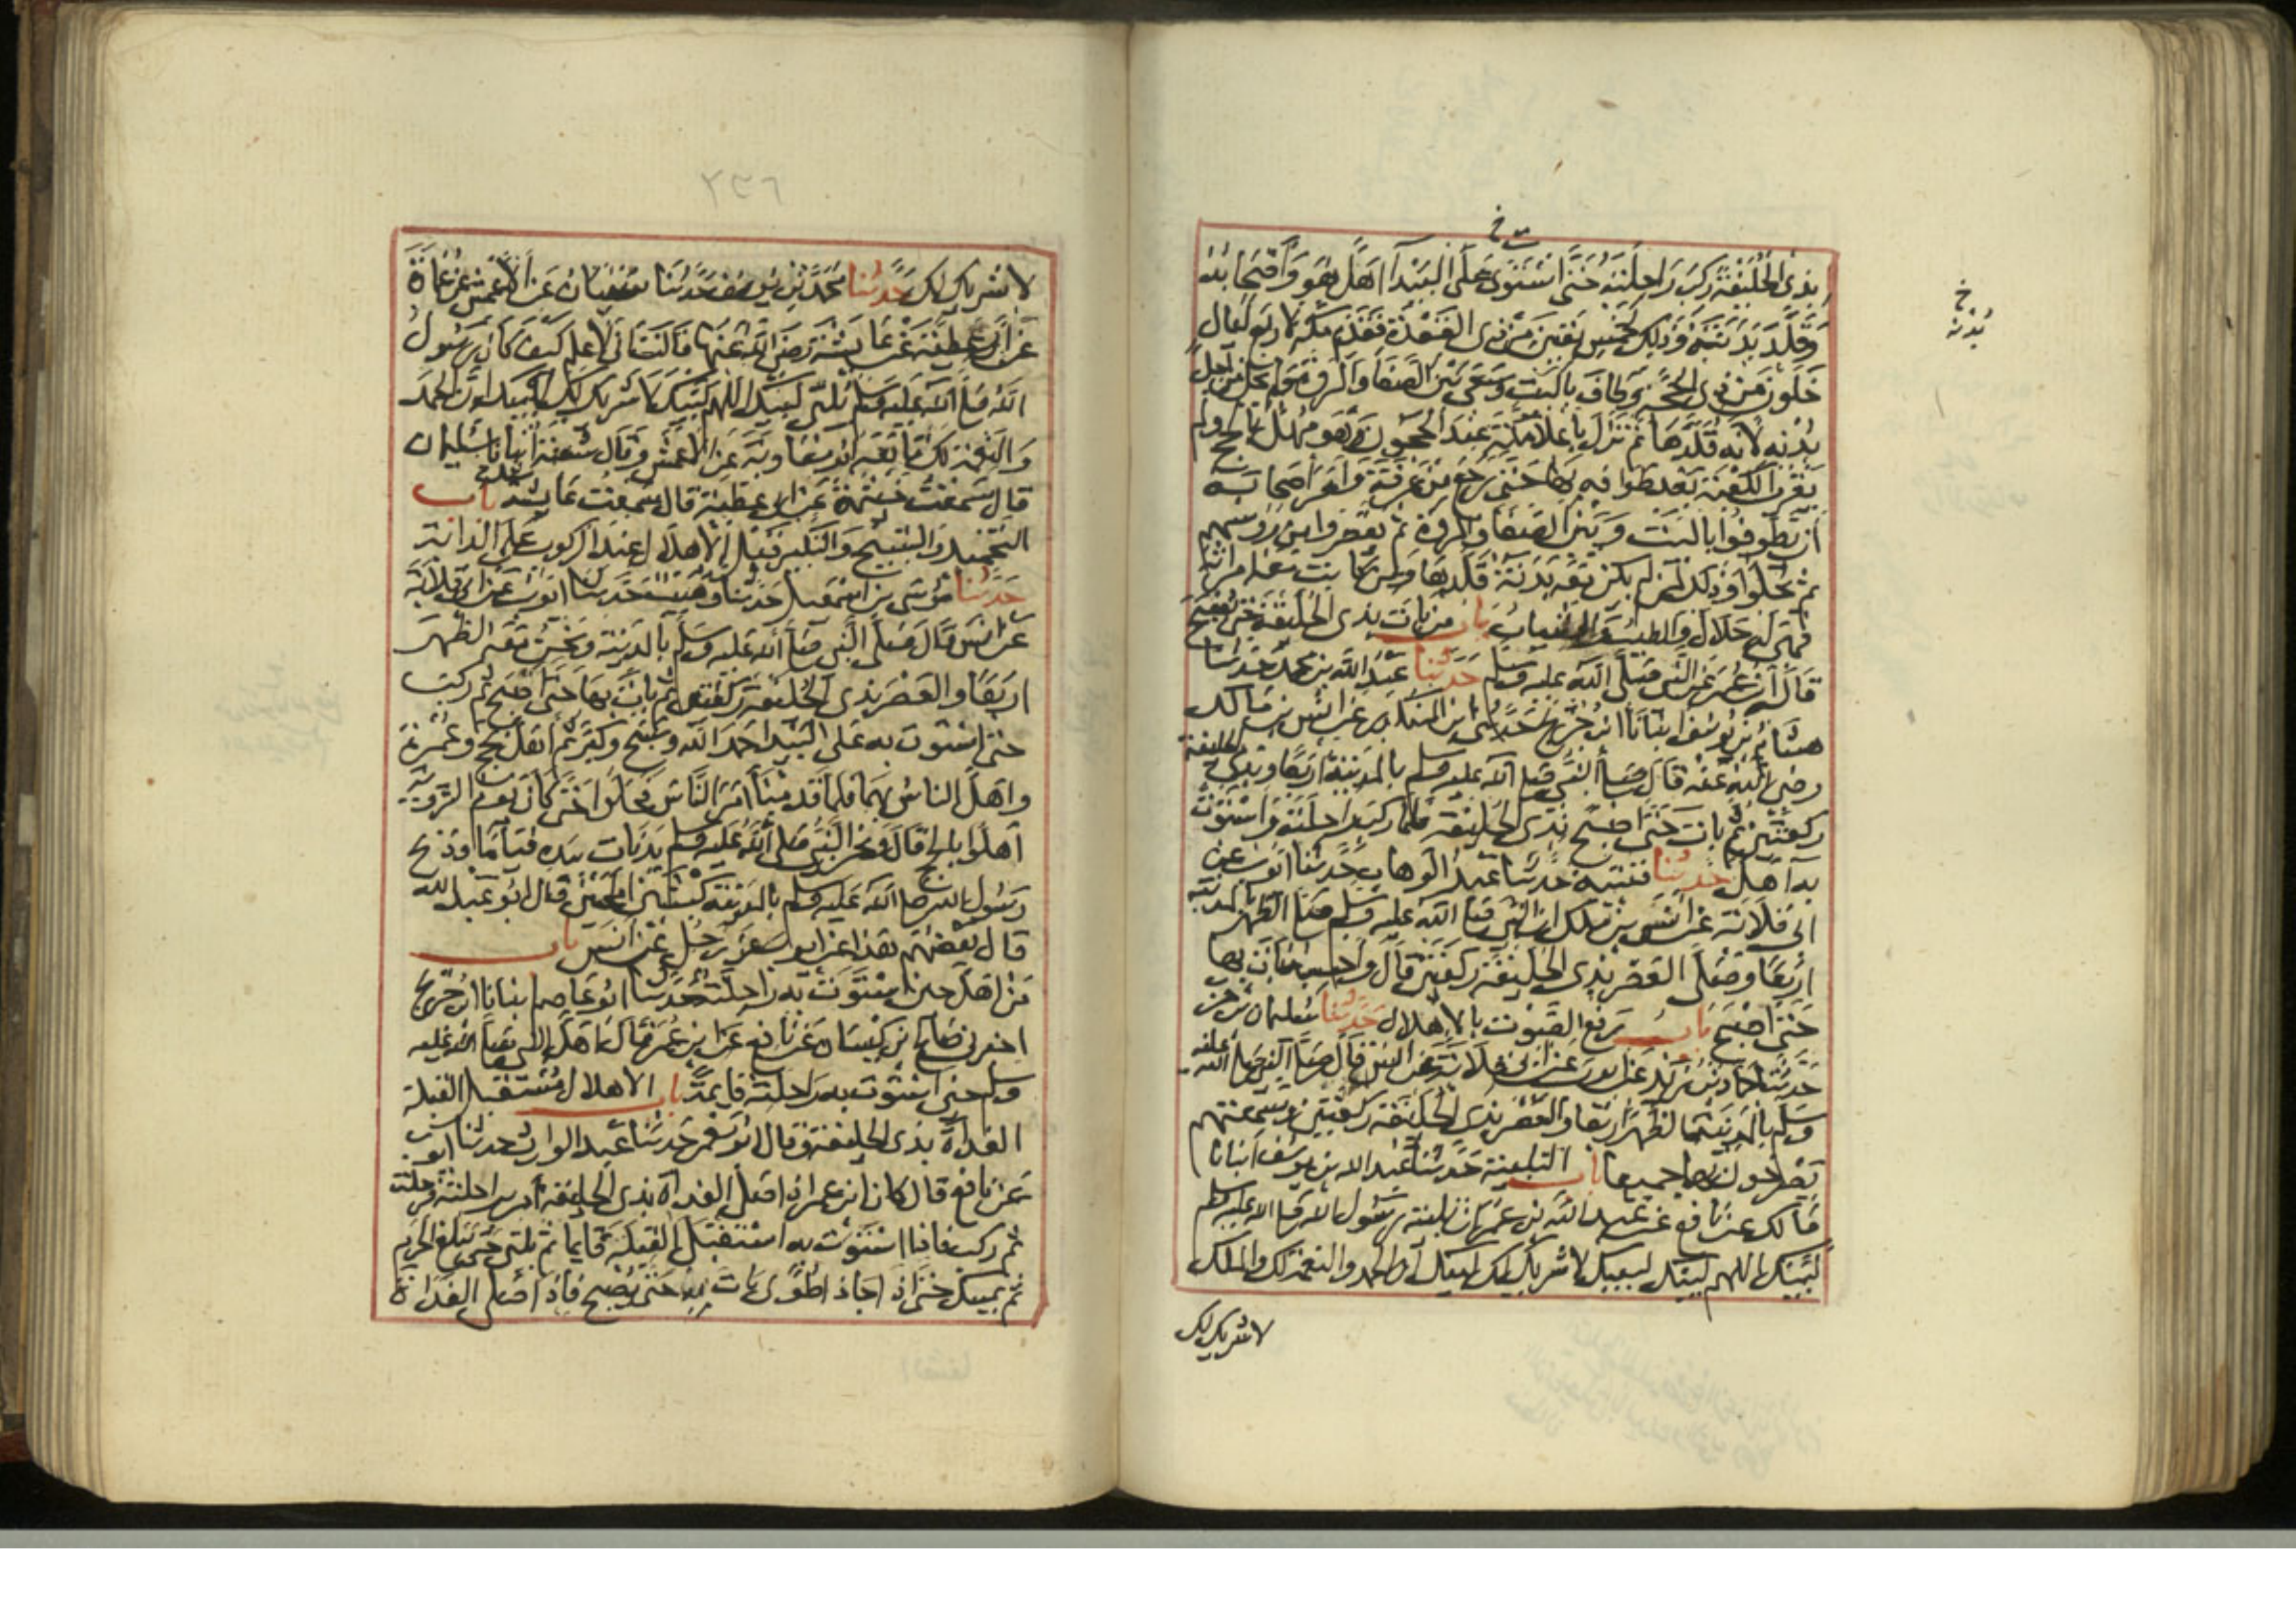 خ
بذى الحليفة ركب راحلته حتى استوى على البيداء اهل هو واصحابه
وقلد بدنته وذلك لخمس بقين من ذى القعدة فقدم مكة لاربع ليال
خلون من ذى الحجة وطاف بالبيت وسعى بين الصفا والمروة ولم يحل من اجل
بدنه لانه قلدها ثم نزل باعلا مكة عند الحجون وهو مهل بالحج ولم
يقرب الكعبة بعد طوافه بها حتى رجع من عرفة وامر اصحابه
ان يطوفوا بالبيت وبين الصفا والمروة ثم يقصروا من رؤسهم
ثم يحلوا وذلك لمن لم يكن معه بدنة قلدها ومن كانت معه امراته
فهى له حلال والطيب والثياب باب من بات بذى الحليفة حتى يصبح
قاله ابن عمر عن النبى صلى الله عليه وسلم حدثنا عبد الله بن محمد حدثنا
هشام بن يوسف انبانا ابن جريج حدثنى ابن المنكدر عن انس بن مالك
رضى الله عنه قال صلى النبى صلى الله عليه وسلم بالمدينة اربعا وبذى الحليفة
ركعتين ثم بات حتى اصبح بذى الحليفة فلما ركب راحلته واستوت
به اهل حدثنا قتيبة حدثنا عبد الوهاب حدثنا ايوب عن
ابى قلابة عن انس بن ملك ان النبى صلى الله عليه وسلم صلى الظهر بالمدينة
اربعا وصلى العصر بذى الحليفة ركعتين قال واحسبه بات بها
حتى اصبح باب رفع الصوت بالاهلال حدثنا سليمان بن حرب
حدثنا حماد بن زيد عن ايوب عن ابى قلابة عن انس قال صلى النبى صلى الله عليه
وسلم بالمدينة الظهر اربعا والعصر بذى الحليفة ركعتين وسمعتهم
يصرخون بهما جميعا باب التلبية حدثنا عبد الله بن يوسف انبانا
مالك عن نافع عن عبد الله بن عمر ان تلبية رسول الله صلى الله عليه وسلم
لبيك اللهم لبيك لبيك لا شريك لك لبيك ان الحمد والنعمة لك والملك
لا شريك لك
خ
بدنه
٢٣٦
لا شريك لك حدثنا محمد بن يوسف حدثنا سفيان عن الاعمش عن عمارة
عن ابى عطية عن عايشة رضى الله عنها قالت انى لاعلم كيف كان رسول
الله صلى الله عليه وسلم يلبى لبيك اللهم لبيك لا شريك لك لبيك ان الحمد
والنعمة لك تابعه ابو معاوية عن الاعمش وقال شعبة انبانا سليمان
قال سمعت خيثمة عن ابى عطية قال سمعت عايشة باب
التحميد والتسبيح والتكبير قبل الاهلال عند الركوب على الدابة
حدثنا موسى بن اسمعيل حدثنا وهيب حدثنا ايوب عن ابى قلابة
عن انس قال صلى النبى صلى الله عليه وسلم بالمدينة ونحن معه الظهر
اربعا والعصر بذى الحليفة ركعتين ثم بات بها حتى اصبح ثم ركب
حتى استوت به على البيداء حمد الله وسبح وكبر ثم اهل بحج وعمرة
واهل الناس بهما فلما قدمنا امر الناس فحلوا حتى كان يوم التروية
اهلوا بالحج قال ونحر النبى صلى الله عليه وسلم بدنات بيده قياما وذبح
رسول الله صلى الله عليه وسلم بالمدينة كبشين املحين قال ابو عبد الله
قال بعضهم هذا عن ايوب عن رجل عن انس باب
من اهل حين استوت به راحلته حدثنا ابو عاصم انبانا ابن جريج
اخبرنى صالح بن كيسان عن نافع عن ابن عمر قال اهل النبى صلى الله عليه
وسلم حين استوت به راحلته قايمة باب الاهلال مستقبل القبلة
الغداة بذى الحليفة وقال ابو معمر حدثنا عبد الوارث حدثنا ايوب
عن نافع قال كان ابن عمر اذا صلى الغداة بذى الحليفة امر براحلته فرحلت
ثم ركب فاذا استوت به استقبل القبلة قايما ثم يلبى حتى يبلغ الحرم
ثم يمسك حتى اذا جاء ذا طوى بات به حتى يصبح فاذا صلى الغداة